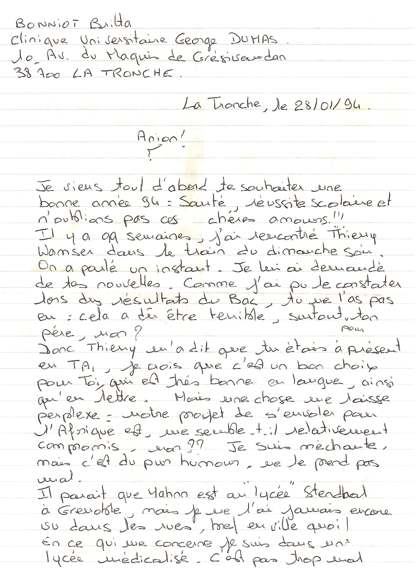 BONNIOT Britta
Clinique Universitaire George DUMAS.
10_ Av. du Maquis de Grésivaudan
38700 LA TRONCHE.
La Tronche, le 28/01/94.
Anion!
?
Je viens tout d'abord te souhaiter une
bonne année 94 : Santé, réussite scolaire et
n'oublions pas ces chères amours.!!!
Il y a qq semaines, j'ai rencontré Thierry
Wamser dans le train du dimanche soir.
On a parlé un instant. Je lui ai demandé
de tes nouvelles. Comme j'ai pu le constater
lors des résultats du Bac, tu ne l'as pas
eu : cela a dû être terrible, surtout pour ton
père, non?
Donc Thierry m'a dit que tu étais à présent
en TA1, je crois que c'est un bon choix
pour Toi, qui est très bonne en langue, ainsi
qu'en lettre. Mais une chose me laisse
perplexe : notre projet de s'envoler pour
l'Afrique est, me semble-t-il relativement
compromis, non?? Je suis méchante,
mais c'est du pur humour, ne le prend pas
mal.
Il parait que Yahnn est au "lycée" Stendhal
à Grenoble, mais je ne l'ai jamais encore
vu dans les rues, bref en ville quoi!
En ce qui me concerne je suis dans un
lycée médicalisé. C'est pas trop mal